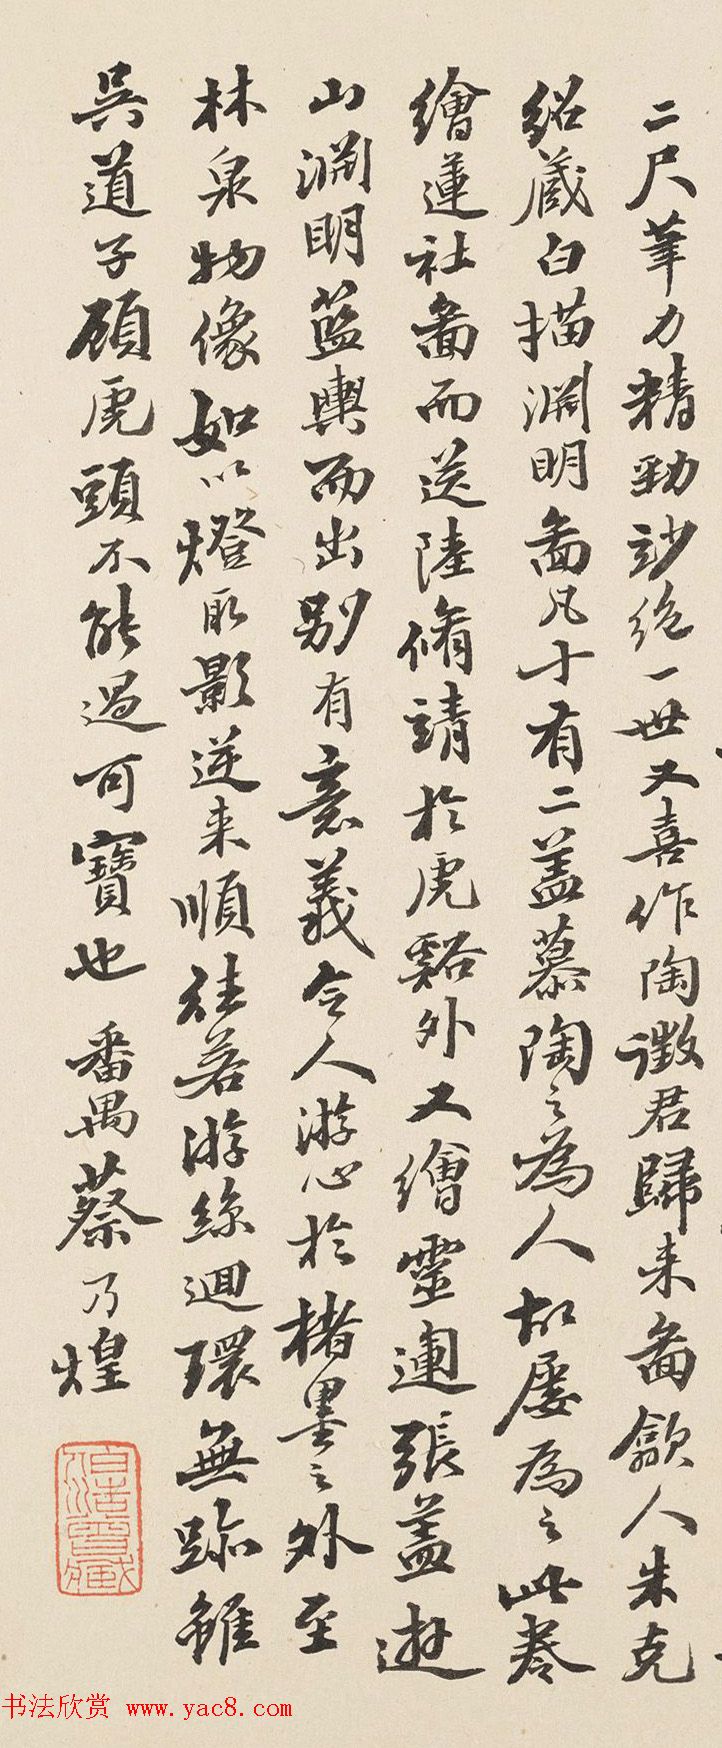 二尺筆力精勁妙絶一世又喜作陶徵君歸来啚歙人朱克
紹蔵白描淵明啚凡十有二盖慕陶之為人故屡為之此卷
繪蓮社啚而送陸脩靖於虎谿外又繪靈運張盖遊
山淵明藍輿而出别有意義令人游心於楮墨之外至
林泉物像如以燈取影逆来順往若游絲迴環無跡雖
吳道子顧虎頭不能過可寶也 番禺蔡乃煌
伯浩曾藏
书法欣赏 www.yac8.com